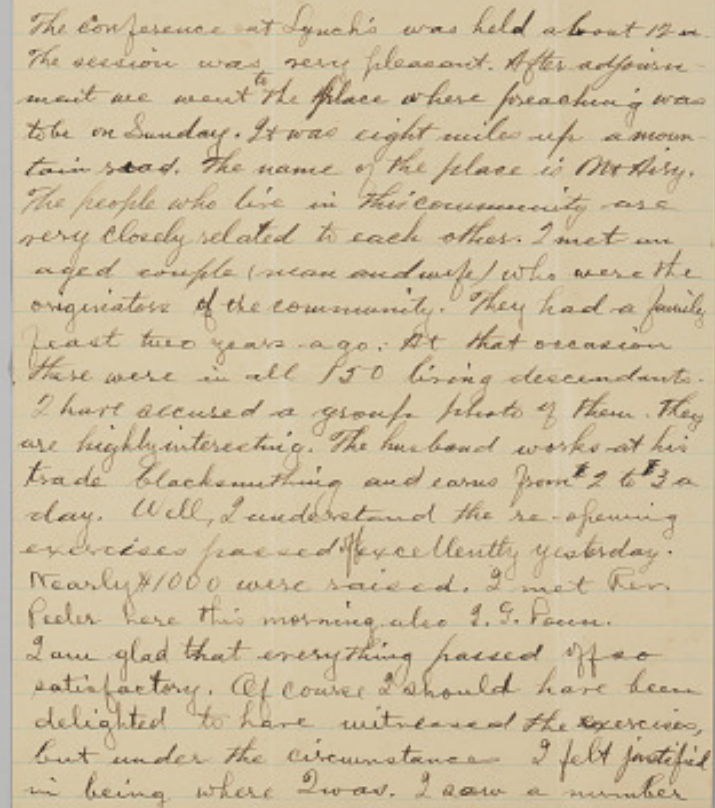 The conference at Lynch's was held about 12 m.
The session was very pleasant. After adjourn-
ment we went to the place where preaching was
to be on Sunday. It was eight miles up a moun-
tain road. The name of the place is Mt Airy.
The people who live in this community are
very closely related to each other. I met an
aged couple (man and wife) who were the
originators of the community. They had a family
feast two years ago. At that occasion
there were in all 150 living descendants.
I have secured a group photo of them. They
are highly interesting. The husband works at his
trade blacksmithing and earns from $2 to $3 a
day. Well, I understand the re-opening
exercises passed off excellently yesterday.
Nearly $1000 were raised. I met Rev.
Peeler here this morning, also I. G.
I am glad that everything passed off so
satisfactory. Of course I should have been
delighted to have witnessed the exercises,
but under the circumstances I felt justified
in being where I was. I saw a number